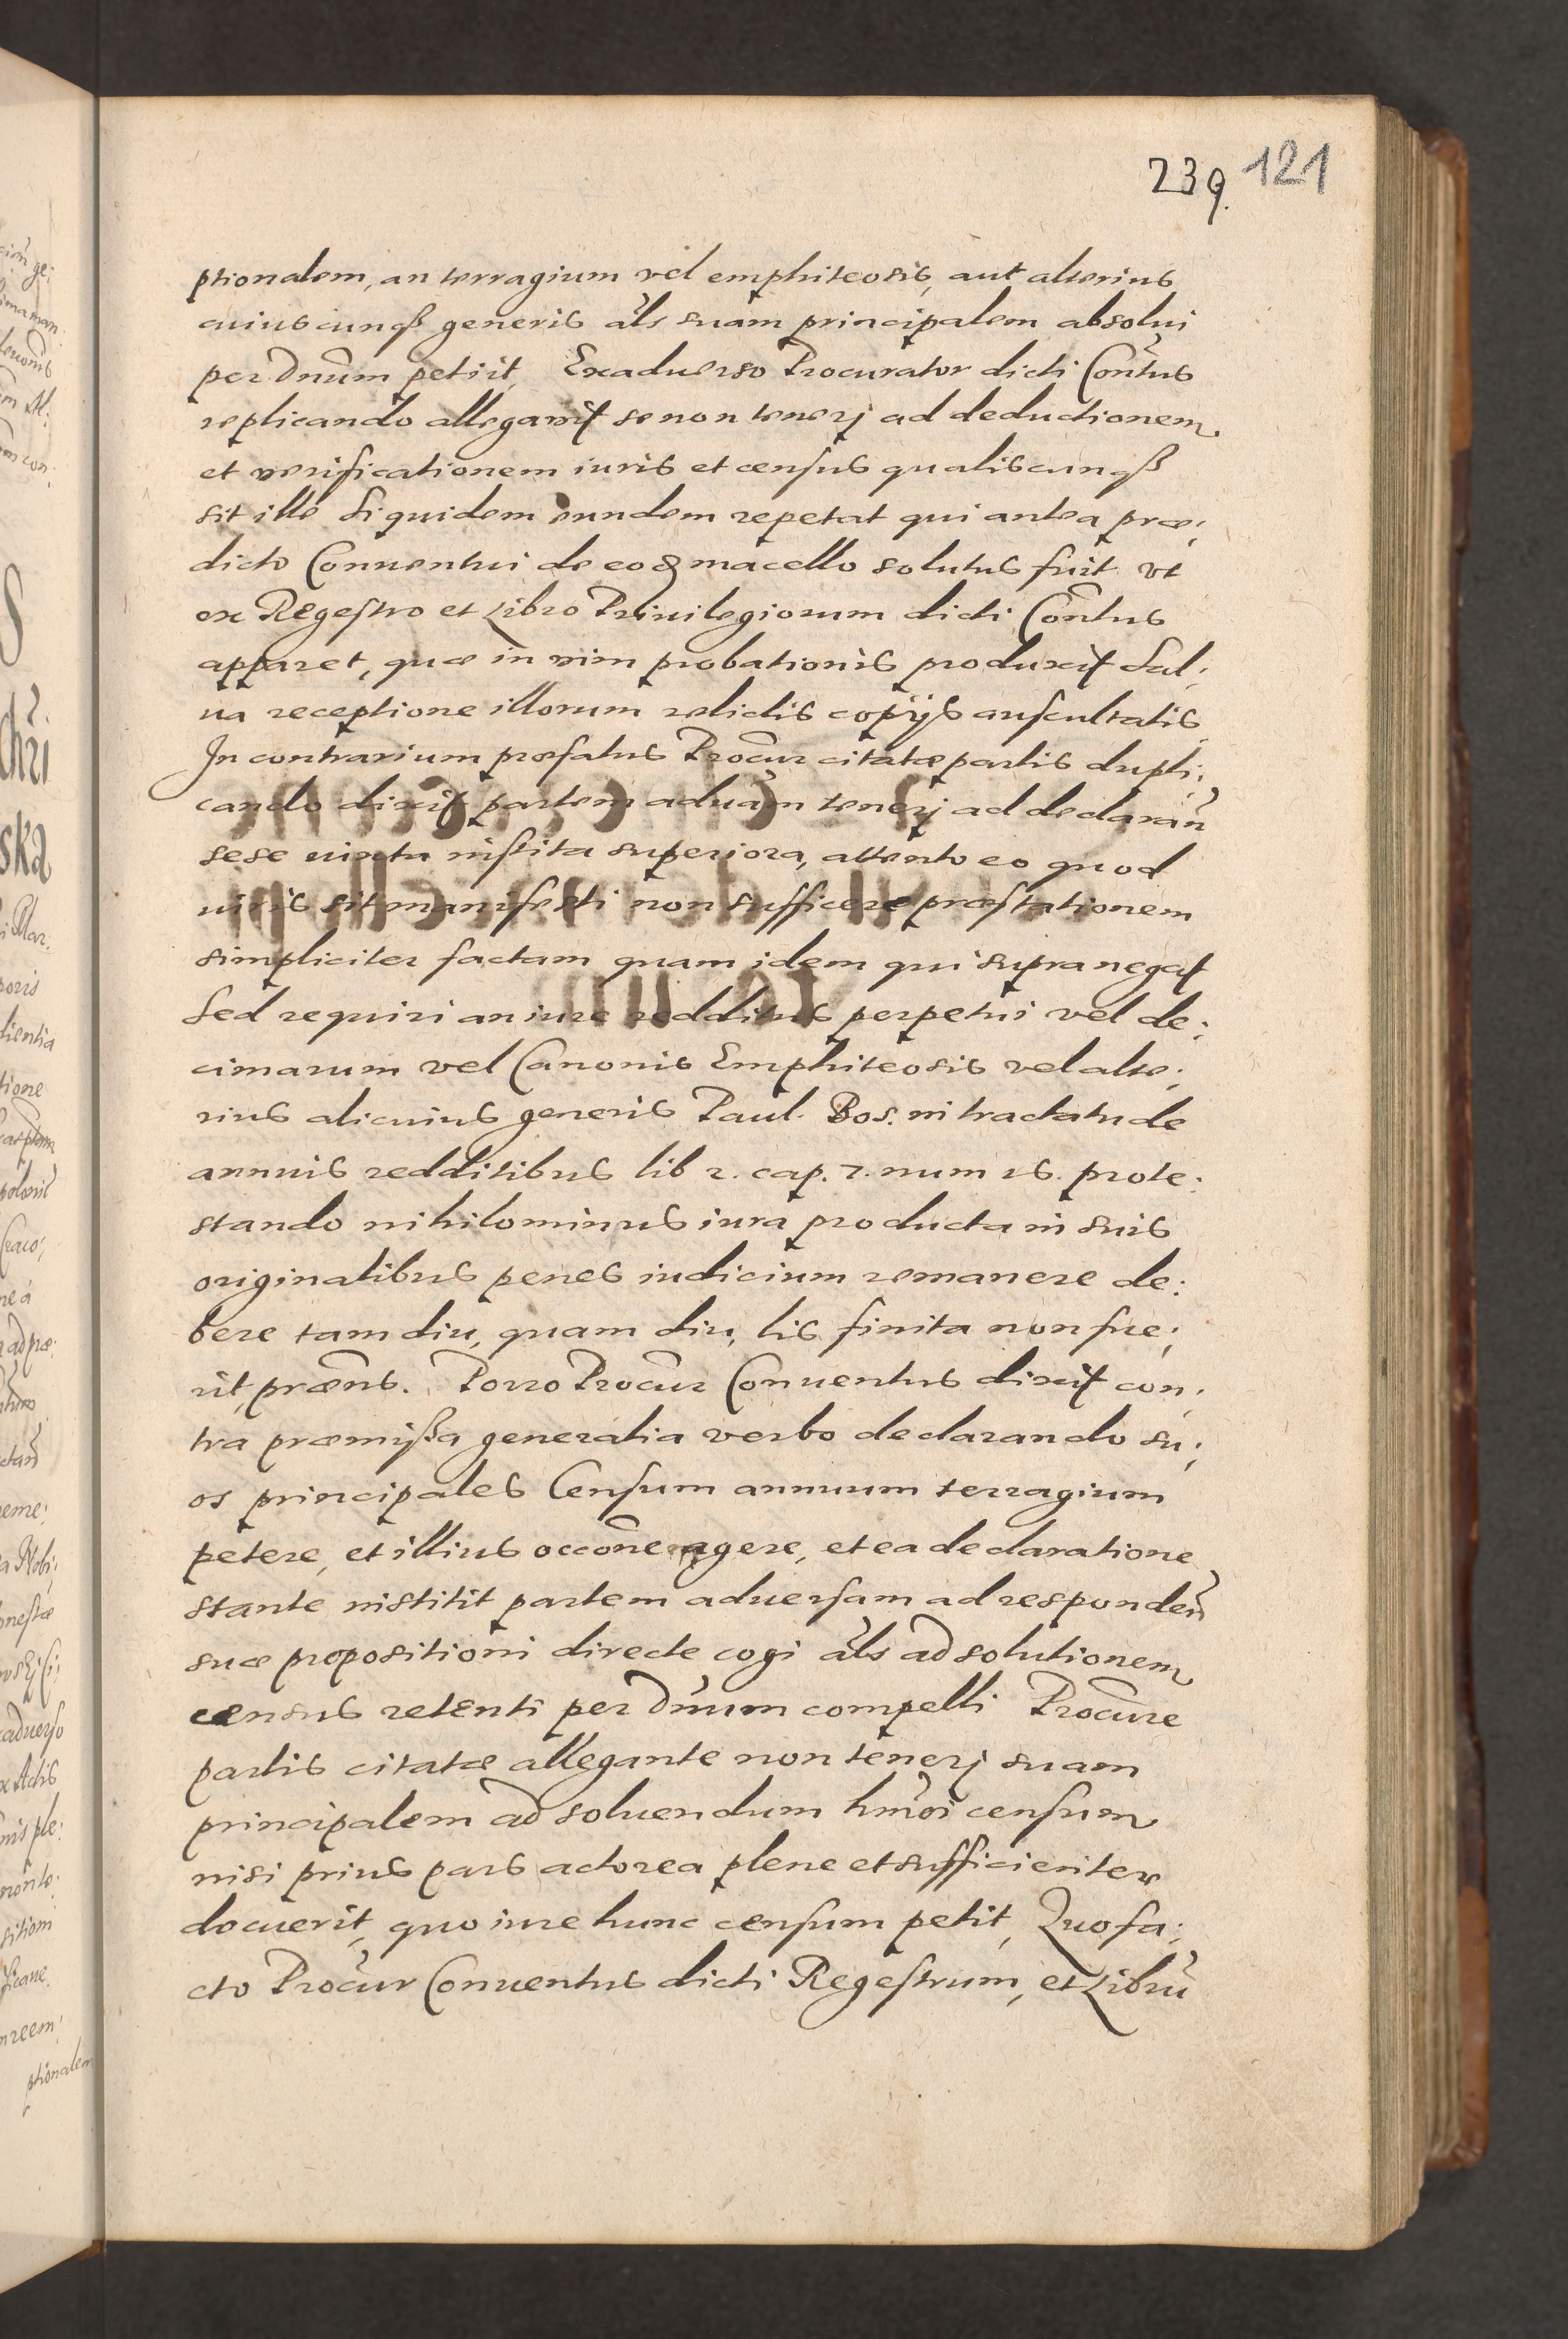 239. 121
ptionalem, an terragium vel emphiteosis, aut alterius
cuiuscunqß generis als suam principalem absolui
per Dnum petijt, Exaduerso Procurator dicti Contus
replicando allegauit se non tenerj ad deductionem
et verificationem iuris et census qualiscunqß
sit ille Siquidem eundem repetat qui antea præ:
dicto Conuentui de eod macello solutus fuit vt
ex Regestro et Libro Priuilegiorum dicti Contus
apparet, quæ in vim probationis produxit Sal:
ua receptione illorum relictis copijs auscultatis
In contrarium præfatus Procur citatæ partis dupli:
cando dixit partem aduam tenerj ad declaran
sese iuxta instita superiora, attento eo quod
iuris sit manifesti non sufficere præstationem
simpliciter factam quam idem qui supra negat
Sed requiri an iure redditus perpetui vel de:
cimarum vel Canonis Emphiteosis vel alte:
rius alicuius generis Paul. Bos. in tractatu de
annuis redditibus lib 2. cap. 7. num 16. prote:
stando nihilominus iura producta in suis
originalibus penes iudicium remanere de:
bere tam diu, quam diu, lis finita non fue:
rit, præns. Porro Procur Conuentus dixit con:
tra præmißa generalia verbo declarando su:
os principales Censum annuum terragium
petere, et illius occone agere, et ea declaratione
stante institit partem aduersam ad responden
suæ propositioni directe cogi als ad solutionem
census retenti per Dnum compelli Procure
partis citatæ allegante non tenerj suam
principalem ad soluendum hmoi censum
nisi prius pars actorea plene et sufficienter
docuerit, quo iure hunc censum petit, Quo fa:
cto Procur Conuentus dicti Regestrum, et Libru